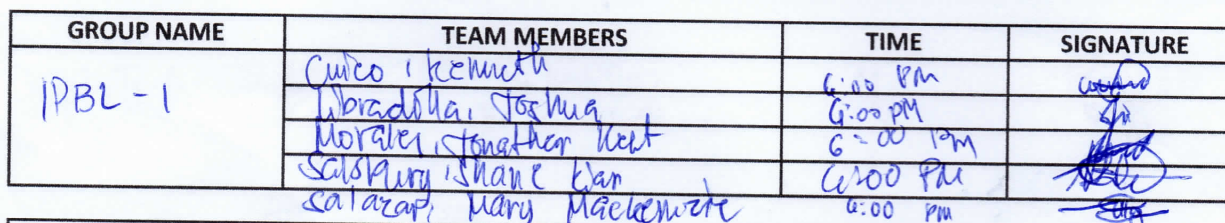 GROUP NAME TEAM MEMBERS TIME SIGNATURE
IPBL-1 Cuico, Kenneth 6:00 PM
Libradilla, Joshua 6:00 PM
Morales, Jonathan Kent 6:00 PM
Salsbury, Shane Kian 6:00 PM
Salazar, Mary Mackenzie 6:00 PM